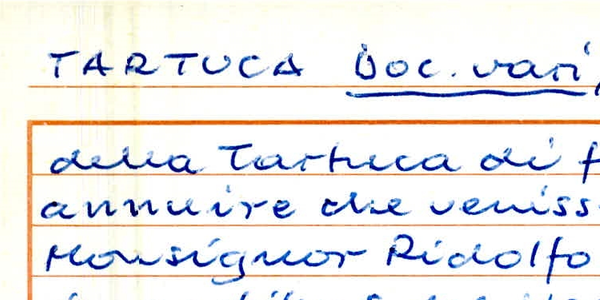 TARTUCA Doc. vari,
della Tartuca di f
annuire che veniss
Monsignor Ridolfo